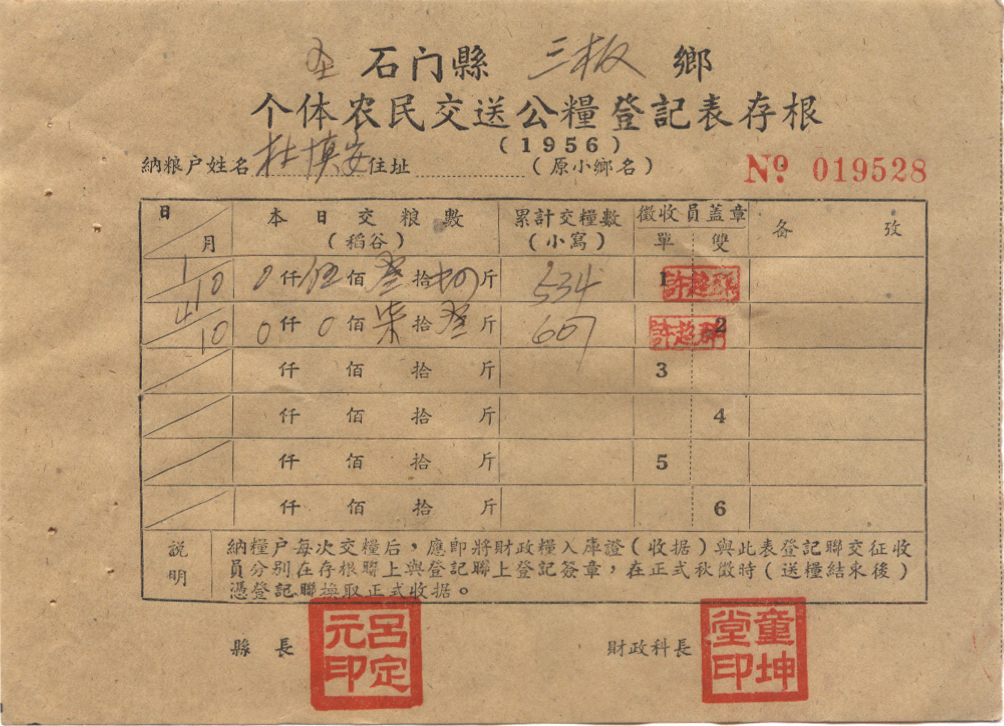 石门縣 三板 鄉
个体农民交送公糧登記表存根
(1956)
納粮户姓名 杜填安 住址 (原小鄉名)
№ 019528
日 月 本日交粮數 (稻谷) 累計交糧數 (小寫) 徵收員盖章 單 雙 备 攷
1 10 0仟伍佰叁拾肆斤 534 1 許超群
4 10 0仟0佰柒拾叁斤 607 2 許超群
仟 佰 拾 斤 3
仟 佰 拾 斤 4
仟 佰 拾 斤 5
仟 佰 拾 斤 6
説明
納糧户每次交糧后，應即將財政糧入庫證(收据)與此表登記聯交征收
員分别在存根聯上與登記聯上登記簽章，在正式秋徵時(送糧結束後)
憑登記聯换取正式收据。
縣長 呂定元印 財政科長 童坤堂印